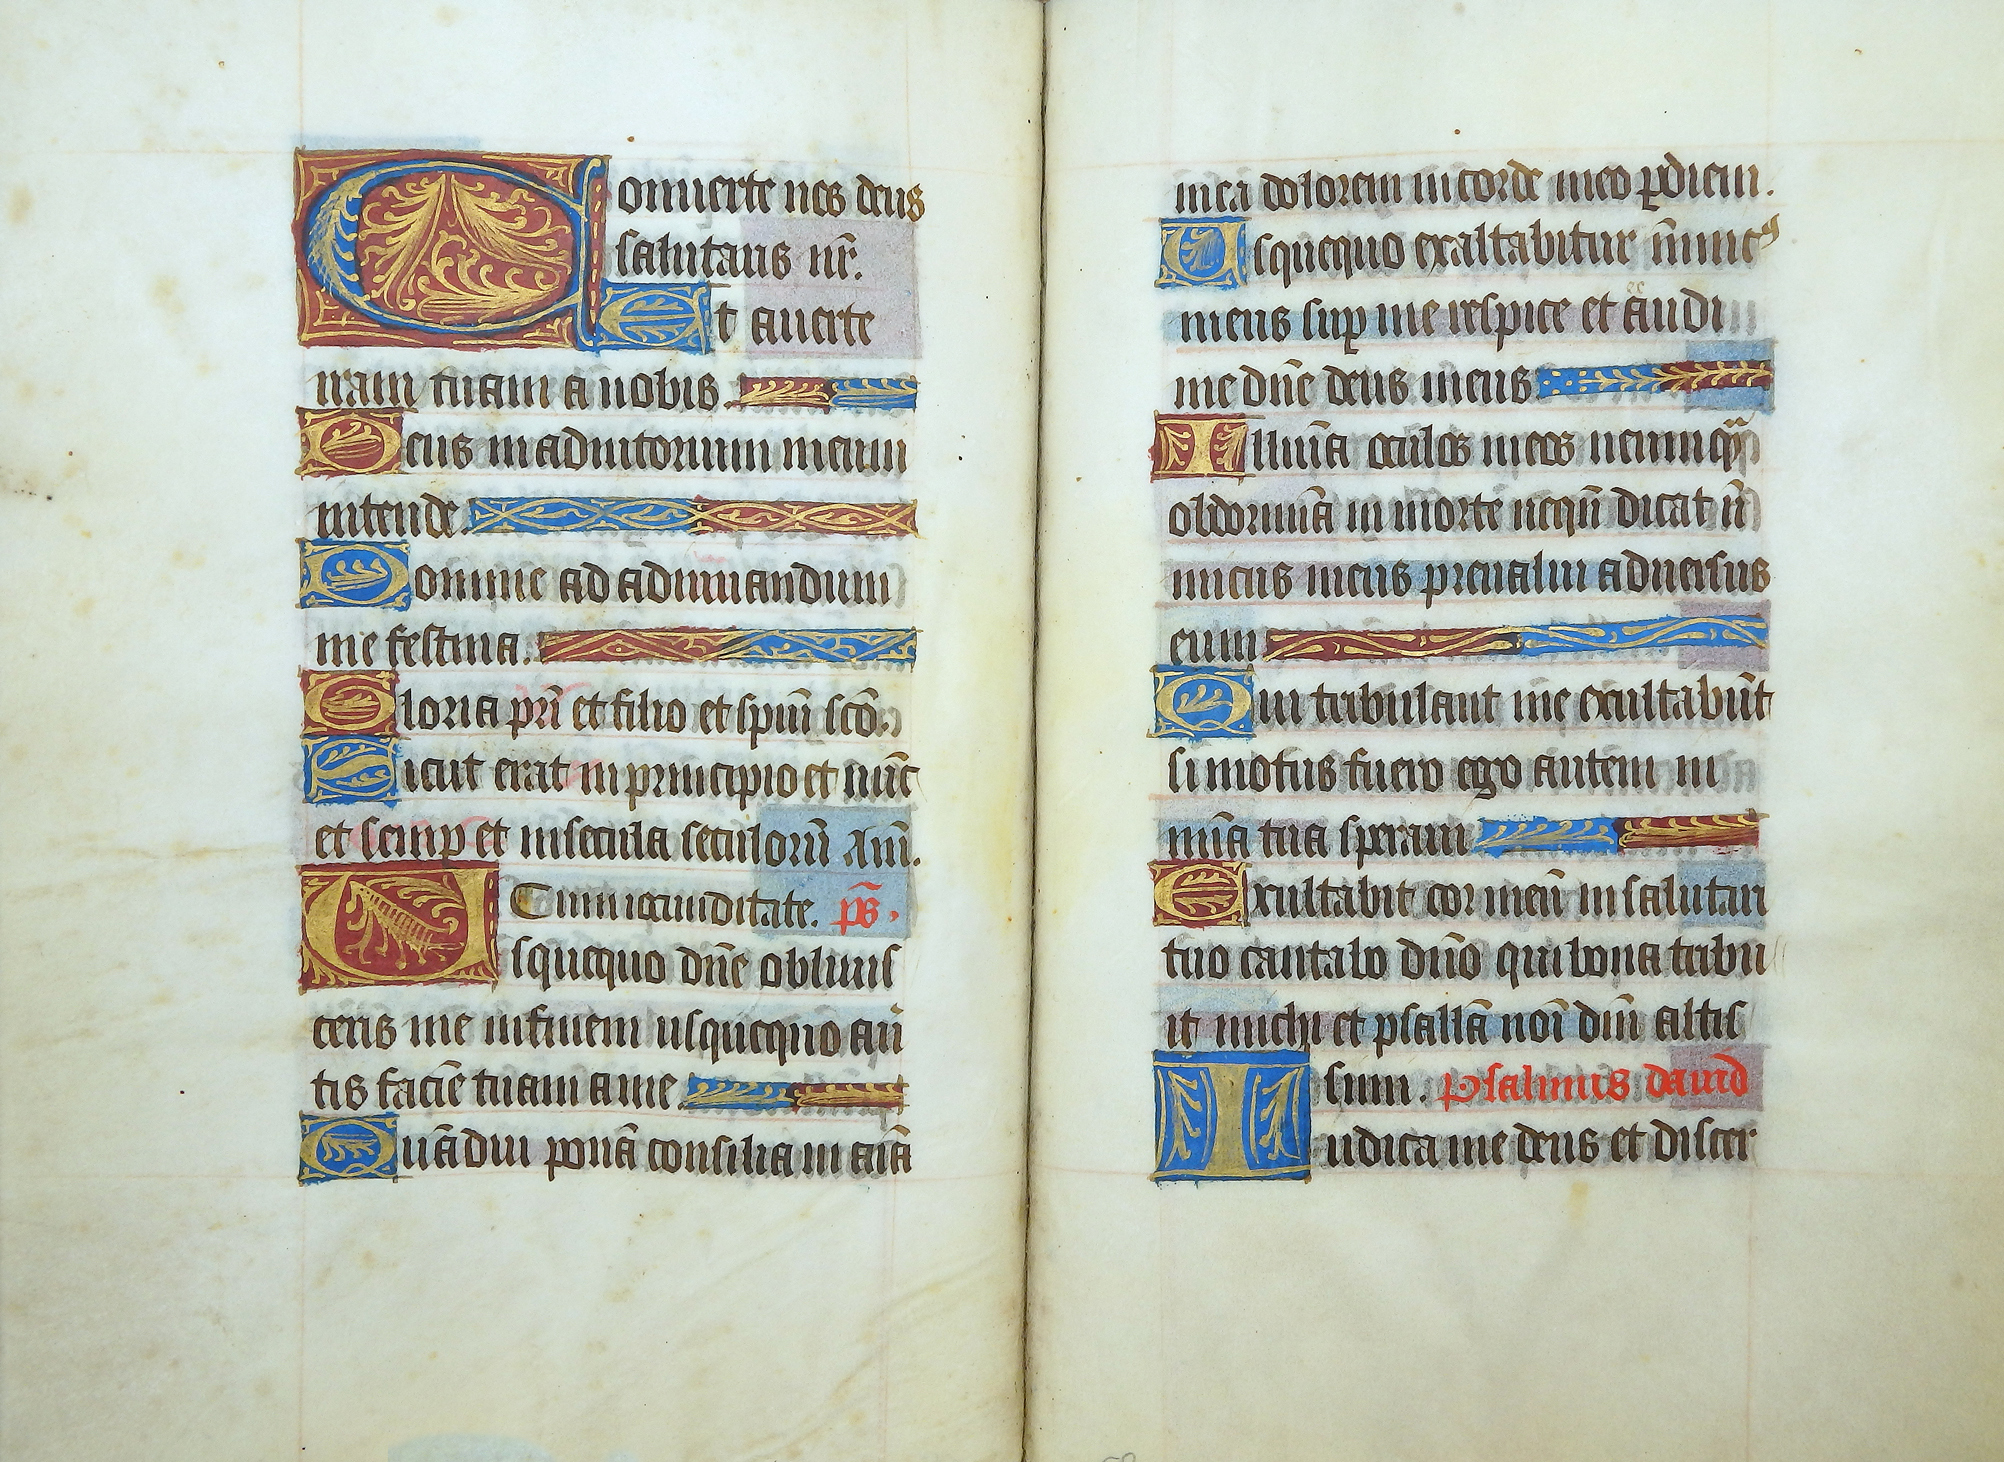 Conuerte nos deus
salutaris nr̄.
Et auerte
iram tuam a nobis
Deus in adiutorium meum
intende
Domine ad adiuuandum
me festina.
Gloria pr̄i et filio et spūi sc̄o.
Sicut erat in principio et nūc
et semp et insecula seculorū Am̄.
Cum iocunditate. ps̄.
Usquequo dn̄e obliuis
ceris me infinem usquequo au
tis faciē tuam a me
Quādiu ponā consilia in aīa
mea dolorem in corde meo pdiem.
Usquequo exaltabitur inimicꝰ
meus sup me respice et exaudi
me dn̄e deus meus
Illumīa oculos meos neumq̄ȝ
obdormiā in morte nequn̄ dicat in̄
imicus meus preualui aduersus
eum
Qui tribulant me exultabūt
si motus fuero ego autem in
mīa tua speraui
Exultabit cor meū in salutari
tuo cantabo dn̄o qui bona tribu
it michi et psallā noī dn̄i altis
simi. Psalmus dauid
Iudica me deus et discer